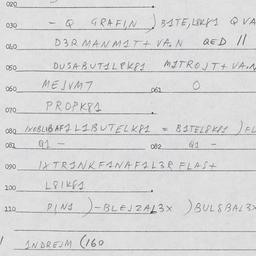 020
030 - Q GRAFIN ) B1TE,L8K81 Q VA
040 D3RMANM1T+ VA,N QED //
050 DUSABUT1L8K81 M1TROJT+ VA,N
060 MEJVM7 061 O
070 PROPK81
080 L1BUTELK81 = B1TEL8K81 ) FL
081 Q1 - 082 Q1 -
090 1XTR1NKF1NAF1L3R FLAS+
100 L81K81
110 P1N1 )-BLEJZAL3X ) BUL8BAL3X
1NDREJM (160